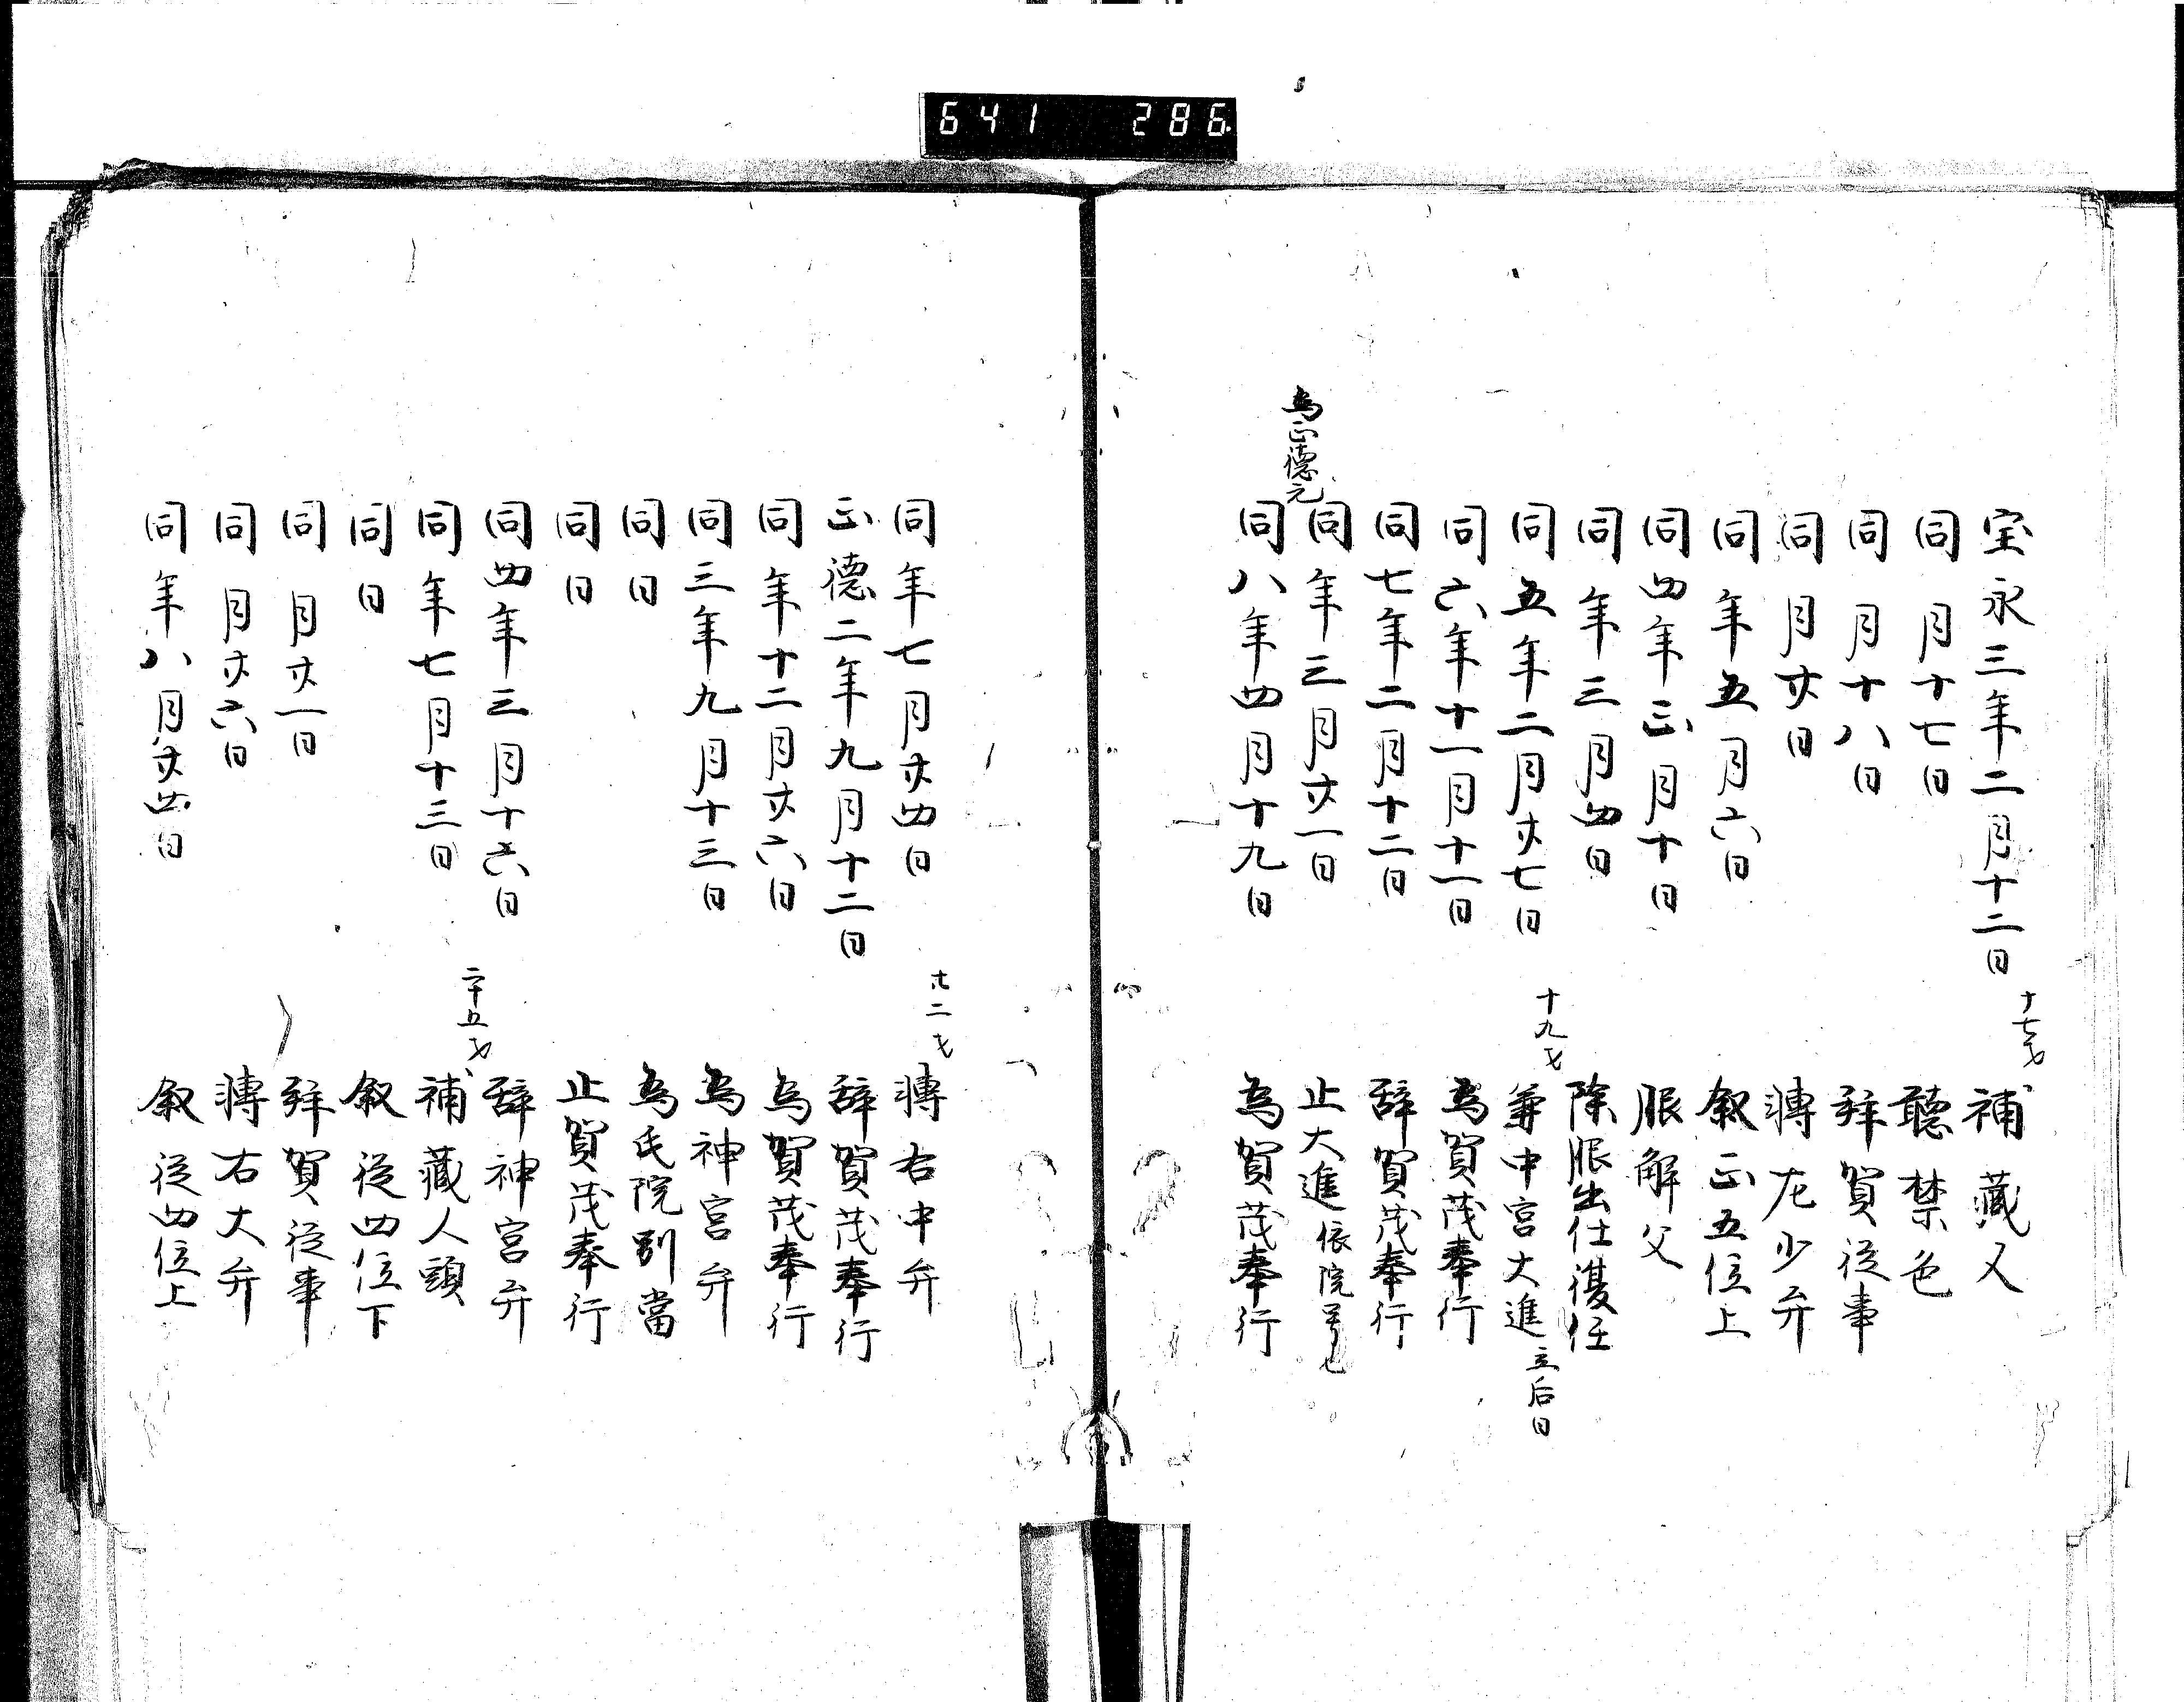 641 286
宝永三年二月十二日 十七才 補藏人
同 月十七日 聽禁色
同 月十八日 拜賀從事
同 月廿日 轉左少弁
同 年五月六日 叙正五位上
同四年正月十日 服解父
同 年三月四日 除服出仕復任
同五年二月廿七日 十九才 兼中宮大進 立后日
同六年十一月十一日 為賀茂奉行
同七年二月十二日 辞賀茂奉行
同 年三月廿一日 止大進 依院号也
為正德元
同八年四月十九日 為賀茂奉行
同年七月廿四日 廿二才 轉右中弁
正德二年九月十二日 辞賀茂奉行
同 年十二月廿六日 為賀茂奉行
同三年九月十三日 為神宮弁
同日 為氏院別當
同日 止賀茂奉行
同四年三月十六日 辞神宮弁
同 年七月十三日 二十五才 補藏人頭
同日 叙從四位下
同 月廿一日 拜賀從事
同 月廿六日 轉右大弁
同 年八月廿四日 叙從四位上